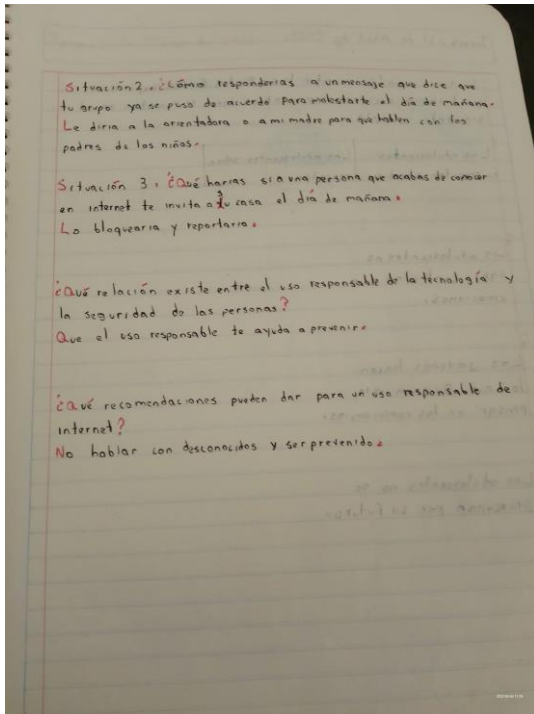 Situación 2. ¿Cómo responderías a un mensaje que dice que
tu grupo ya se puso de acuerdo para molestarte el día de mañana.
Le diria a la orientadora o a mi madre para que hablen con los
padres de los niños.
Situación 3. ¿Qué harias si a una persona que acabas de conocer
en internet te invita a su casa el día de mañana.
Lo bloquearia y reportaria.
¿Qué relación existe entre el uso responsable de la tecnología y
la seguridad de las personas?
Que el uso responsable te ayuda a prevenir.
¿Qué recomendaciones pueden dar para un uso responsable de
internet?
No hablar con desconocidos y ser prevenido.